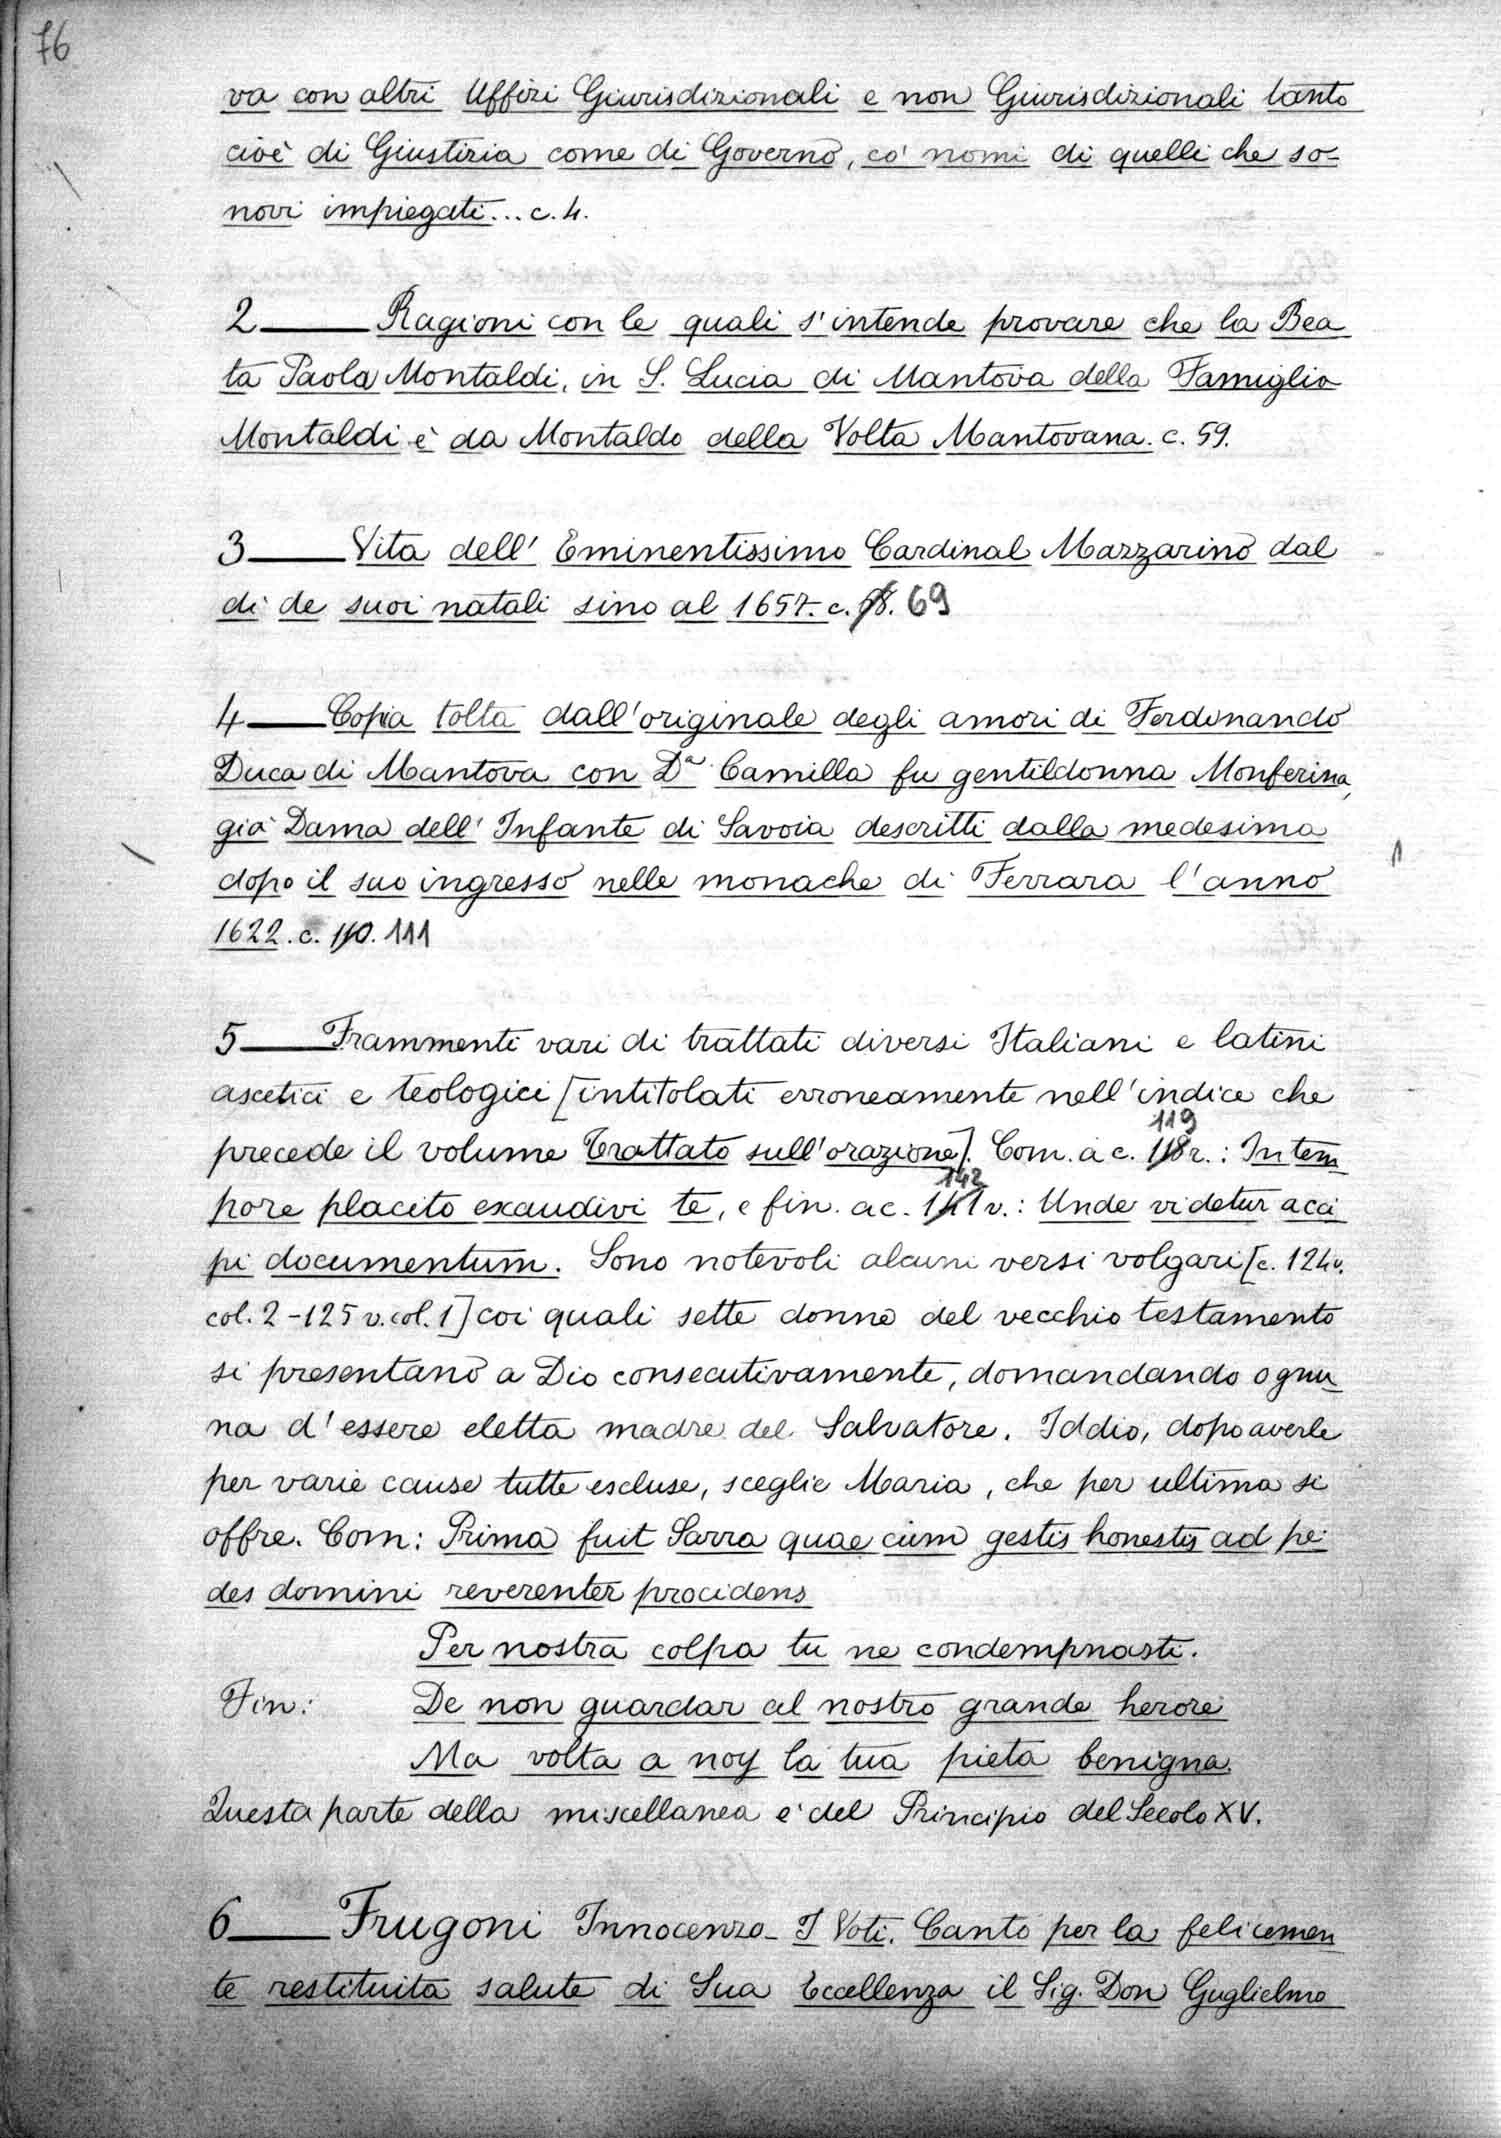 76
va con altri Uffizi Giurisdizionali e non Giurisdizionali tanto
cioè di Giustizia come di Governo, co' nomi di quelli che so-
novi impiegati... c. 4.
2 Ragioni con le quali s'intende provare che la Bea
ta Paola Montaldi, in S. Lucia di Mantova della Famiglia
Montaldi è da Montaldo della Volta Mantovana. c. 59.
3 Vita dell' Eminentissimo Cardinal Mazzarino dal
dì de suoi natali sino al 1657. c. 69
4 Copia tolta dall'originale degli amori di Ferdinando
Duca di Mantova con Dª Camilla fu gentildonna Monferina,
già Dama dell' Infante di Savoia descritti dalla medesima
dopo il suo ingresso nelle monache di Ferrara l'anno
1622. c. 110. 111
5 Frammenti vari di trattati diversi Italiani e latini
ascetici e teologici [intitolati erroneamente nell'indice che
precede il volume Trattato sull'orazione]. Com. a c. 118 119 r.: In tem
pore placito exaudivi te, e fin. a c. 141 142 v.: Unde videtur acci
pi documentum. Sono notevoli alcuni versi volgari [c. 124v.
col. 2 - 125 v. col. 1] coi quali sette donne del vecchio testamento
si presentano a Dio consecutivamente, domandando ognu
na d'essere eletta madre del Salvatore. Iddio, dopo averle
per varie cause tutte escluse, sceglie Maria, che per ultima si
offre. Com: Prima fuit Sarra quae cum gestis honestis ad pe
des domini reverenter procidens
Per nostra colpa tu ne condempnasti.
Fin: De non guardar al nostro grande herore
Ma volta a noy la tua pieta benigna.
Questa parte della miscellanea è del Principio del Secolo XV.
6 Frugoni Innocenzo - I Voti. Canto per la felicemen
te restituita salute di Sua Eccellenza il Sig. Don Guglielmo